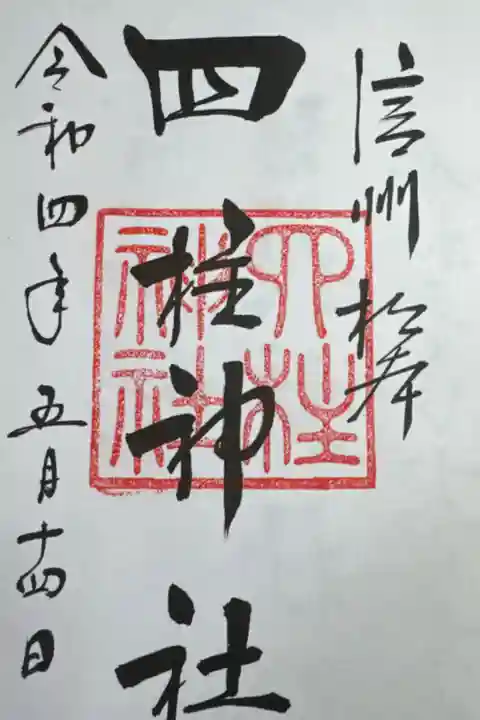 信州 松本
四柱神社
四柱神社
令和四年五月十四日